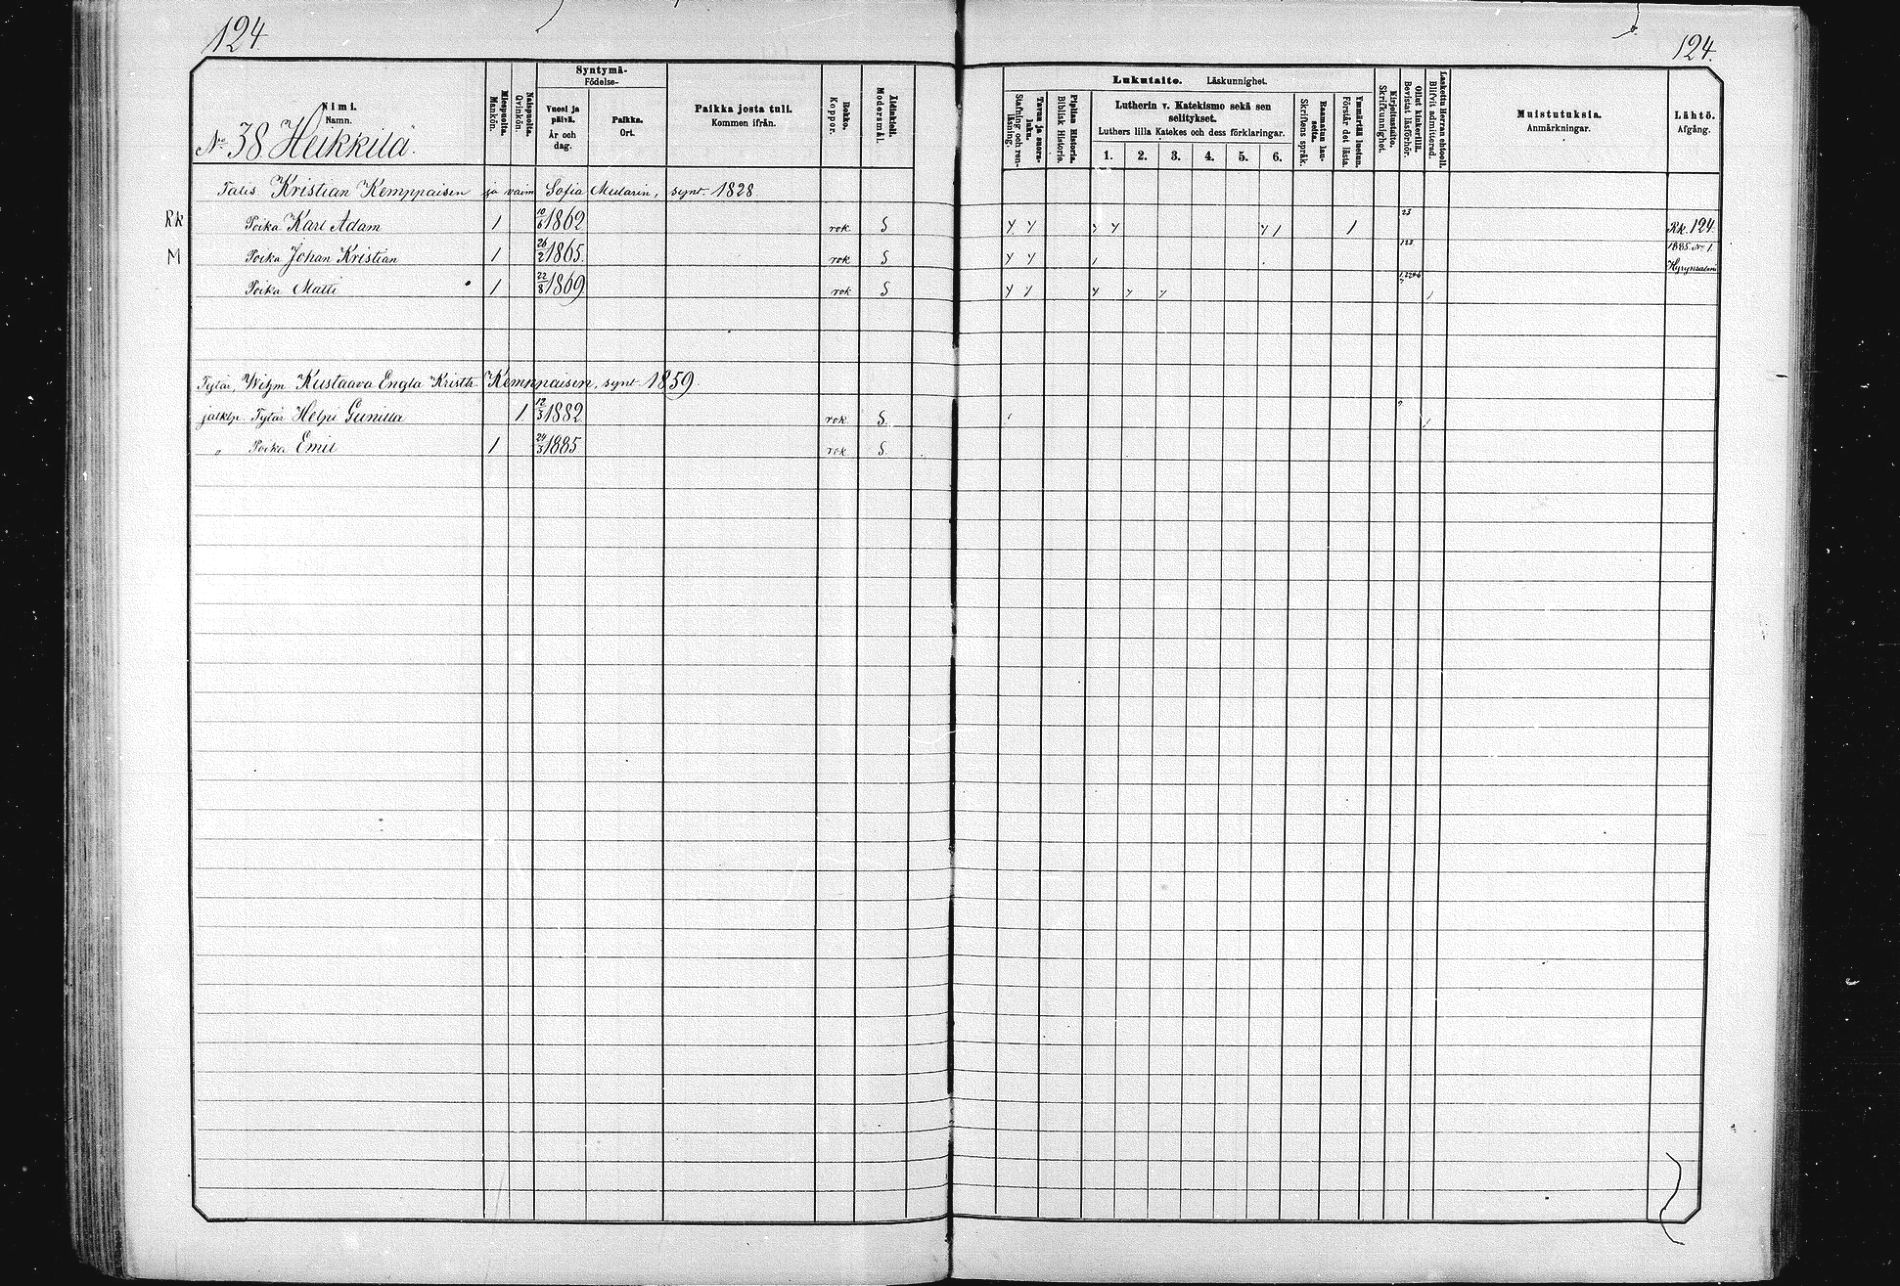 124 124.
Syntymä-
Födelse-
Nimi.
Namn.
Miespuolta.
Mankön.
Naispuolta.
Qvinkön.
Vuosi ja päivä.
År och dag.
Paikka.
Ort.
Paikka josta tuli.
Kommen ifrån.
Rokko.
Koppor.
Äidinkieli.
Modersmål.
Lukutaito. Läskunnighet.
Tavuu ja suora-luku.
Stafning och ren-läsning.
Piplian Historia.
Biblisk Historia.
Lutherin v. Katekismo sekä sen selitykset.
Luthers lilla Katekes och dess förklaringar.
1. 2. 3. 4. 5. 6.
Raamatun lau-seita.
Skriftens språk.
Ymmärtää luetun.
Förstår det lästa.
Kirjoitustaito.
Skrifkunnighet.
Ollut kinkerillä.
Bevistat läsförhör.
Laskettu Herran ehtooll.
Blifvit admitterad.
Muistutuksia.
Anmärkningar.
Lähtö.
Afgång.
No 38 Heikkilä.
Kristian Kemppaisen ja vaim Sofia synt. 1828
Rk Poika Karl Adam 1 10/6 1862 rok S y y y y y 1 1 23 Rk. 124
M Poika Johan Kristian 1 26/2 1865 rok S y y 1885 No 1
Hyrynsalmi
Poika Matti 1 22/8 1869 rok S y y y y y
Tytär, Kustaava Engla Kemppaisen, synt 1859
Tytär Gunilla 1 12/3 1882 rok S
" Poika Emil 1 24/3 1885 rok S